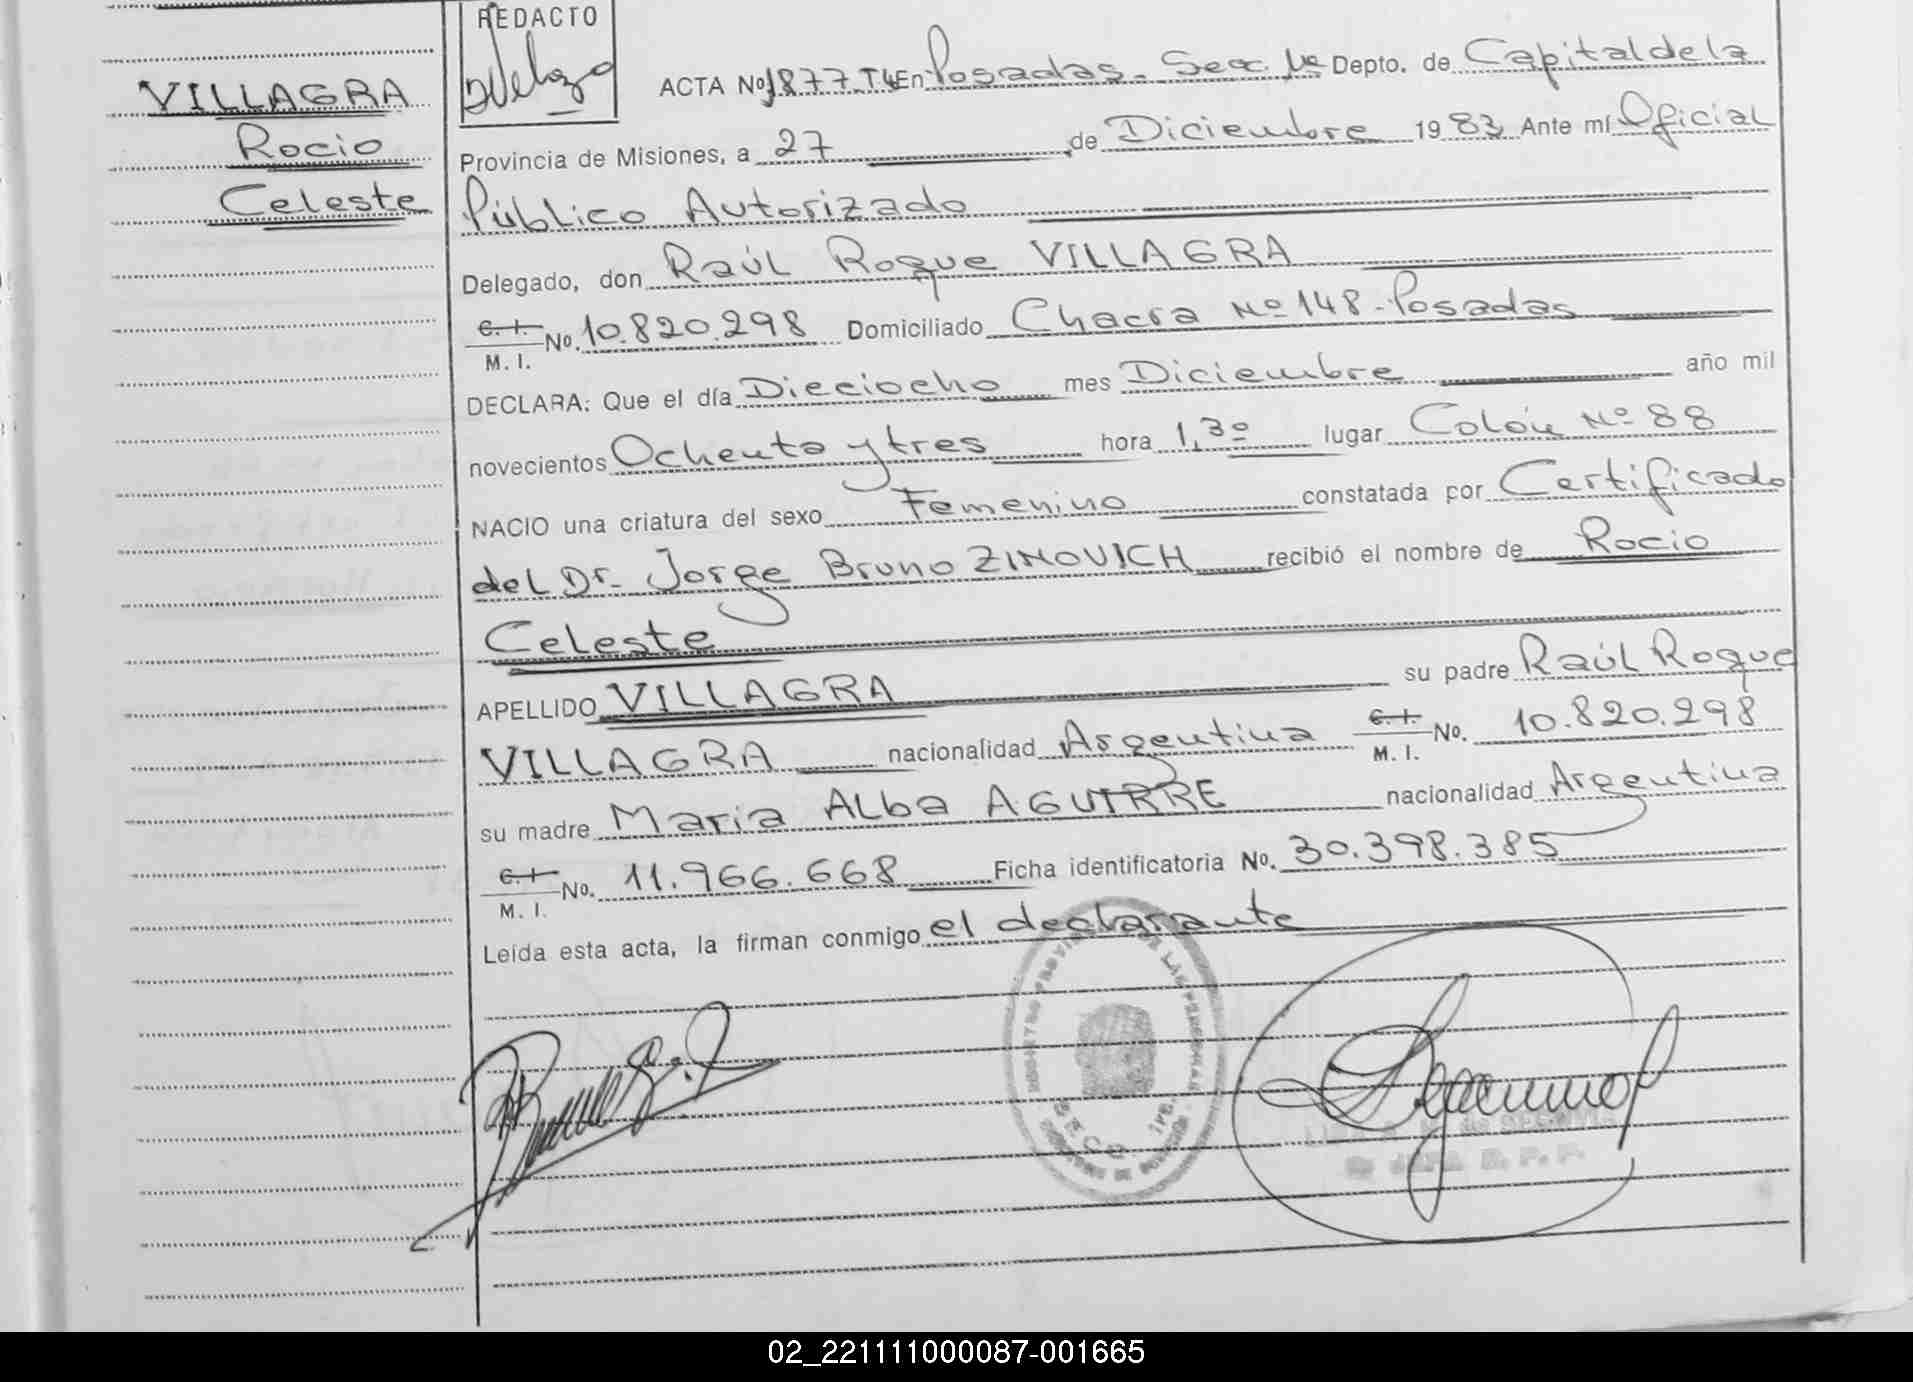 REDACTO
VILLAGRA
Rocio
Celeste
ACTA No 1877.T4 En Posadas. Secc. 1ª Depto. de Capital de la
Provincia de Misiones, a 27 de Diciembre 1983 Ante mí Oficial
Público Autorizado
Delegado, don Raúl Roque VILLAGRA
C. I. M. I. No. 10.820.298 Domiciliado Chacra Nº 148 - Posadas
DECLARA: Que el día Dieciocho mes Diciembre año mil
novecientos Ochenta y tres hora 1,30 lugar Colón Nº 88
NACIO una criatura del sexo Femenino constatada por Certificado
del Dr. Jorge Bruno ZINOVICH recibió el nombre de Rocio
Celeste
APELLIDO VILLAGRA su padre Raúl Roque
VILLAGRA nacionalidad Argentina C. I. M. I. No. 10.820.298
su madre Maria Alba AGUIRRE nacionalidad Argentina
C. I. M. I. No. 11.966.668 Ficha identificatoria No. 30.398.385
Leída esta acta, la firman conmigo el declarante
02_221111000087-001665